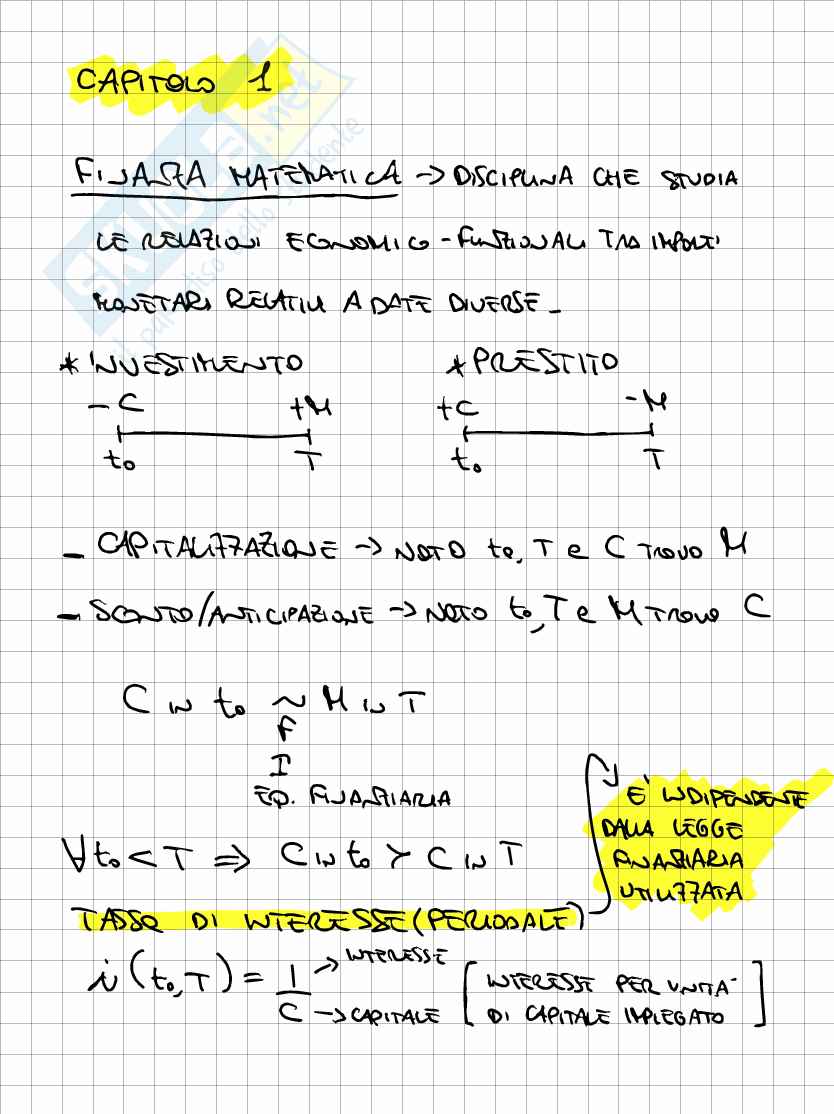 CAPITOLO 1
FINANZA MATEMATICA → DISCIPLINA CHE STUDIA
LE RELAZIONI ECONOMICO-FUNZIONALI TRA IMPORTI
MONETARI RELATIVI A DATE DIVERSE_
* INVESTIMENTO * PRESTITO
-C +M +C -M
t₀ T t₀ T
- CAPITALIZZAZIONE → NOTO t₀, T e C TROVO M
- SCONTO/ANTICIPAZIONE → NOTO t₀, T e M TROVO C
C IN t₀ ~ M IN T
F
I
EQ. FINANZIARIA
È INDIPENDENTE
DALLA LEGGE
FINANZIARIA
UTILIZZATA
∀t₀ < T ⇒ C IN t₀ ≻ C IN T
TASSO DI INTERESSE (PERIODALE)
i(t₀,T) = I/C → INTERESSE → CAPITALE [INTERESSE PER UNITA'
DI CAPITALE IMPIEGATO]
SKUOLA.net
il paradiso dello studente